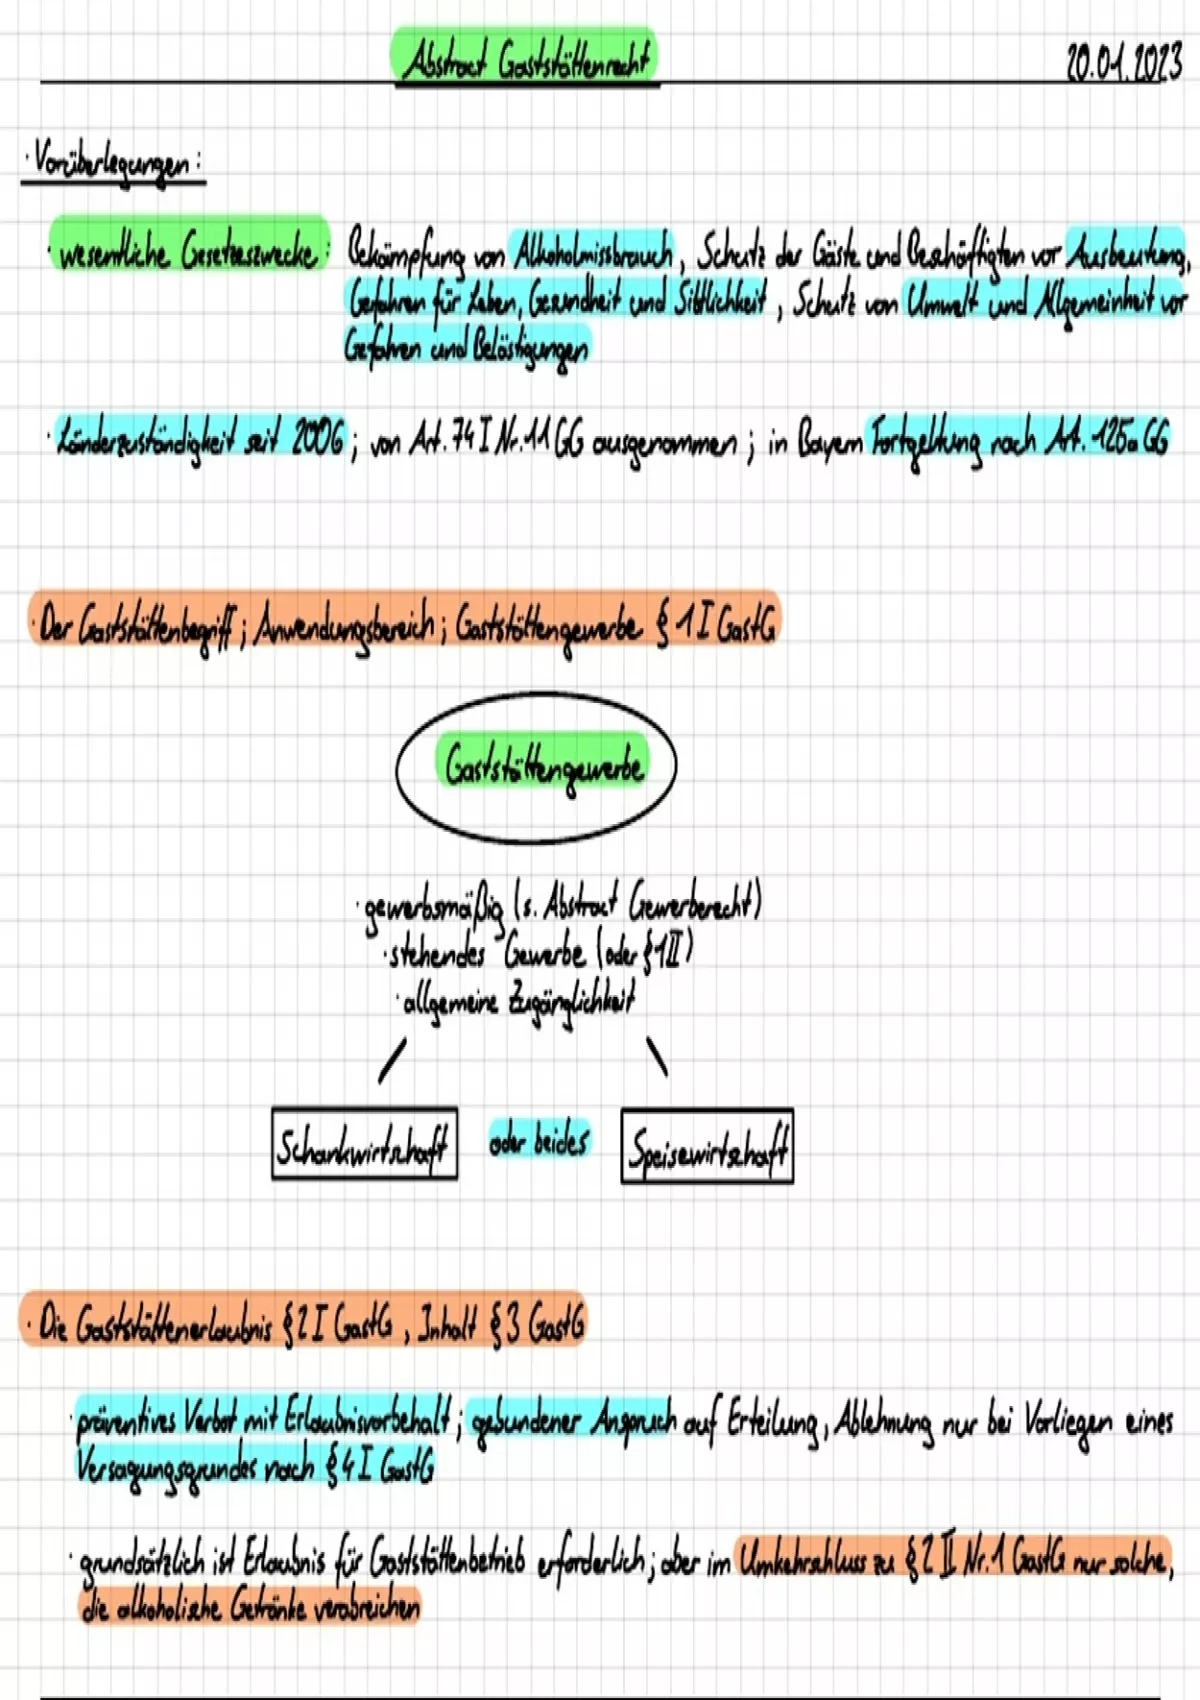 Abstract Gaststättenrecht 20.01.2023
· Vorüberlegungen:
· wesentliche Gesetzeszwecke: Bekämpfung von Alkoholmissbrauch, Schutz der Gäste und Beschäftigten vor Ausbeutung,
Gefahren für Leben, Gesundheit und Sittlichkeit, Schutz von Umwelt und Allgemeinheit vor
Gefahren und Belästigungen
· Länderzuständigkeit seit 2006; von Art. 74 I Nr. 11 GG ausgenommen; in Bayern Fortgeltung nach Art. 125a GG
· Der Gaststättenbegriff; Anwendungsbereich; Gaststättengewerbe § 1 I GastG
Gaststättengewerbe
· gewerbsmäßig (s. Abstract Gewerberecht)
· stehendes Gewerbe (oder § 1 II)
· allgemeine Zugänglichkeit
Schankwirtschaft oder beides Speisewirtschaft
· Die Gaststättenerlaubnis § 2 I GastG, Inhalt § 3 GastG
· präventives Verbot mit Erlaubnisvorbehalt; gebundener Anspruch auf Erteilung, Ablehnung nur bei Vorliegen eines
Versagungsgrundes nach § 4 I GastG
· grundsätzlich ist Erlaubnis für Gaststättenbetrieb erforderlich; aber im Umkehrschluss zu § 2 II Nr. 1 GastG nur solche,
die alkoholische Getränke verabreichen